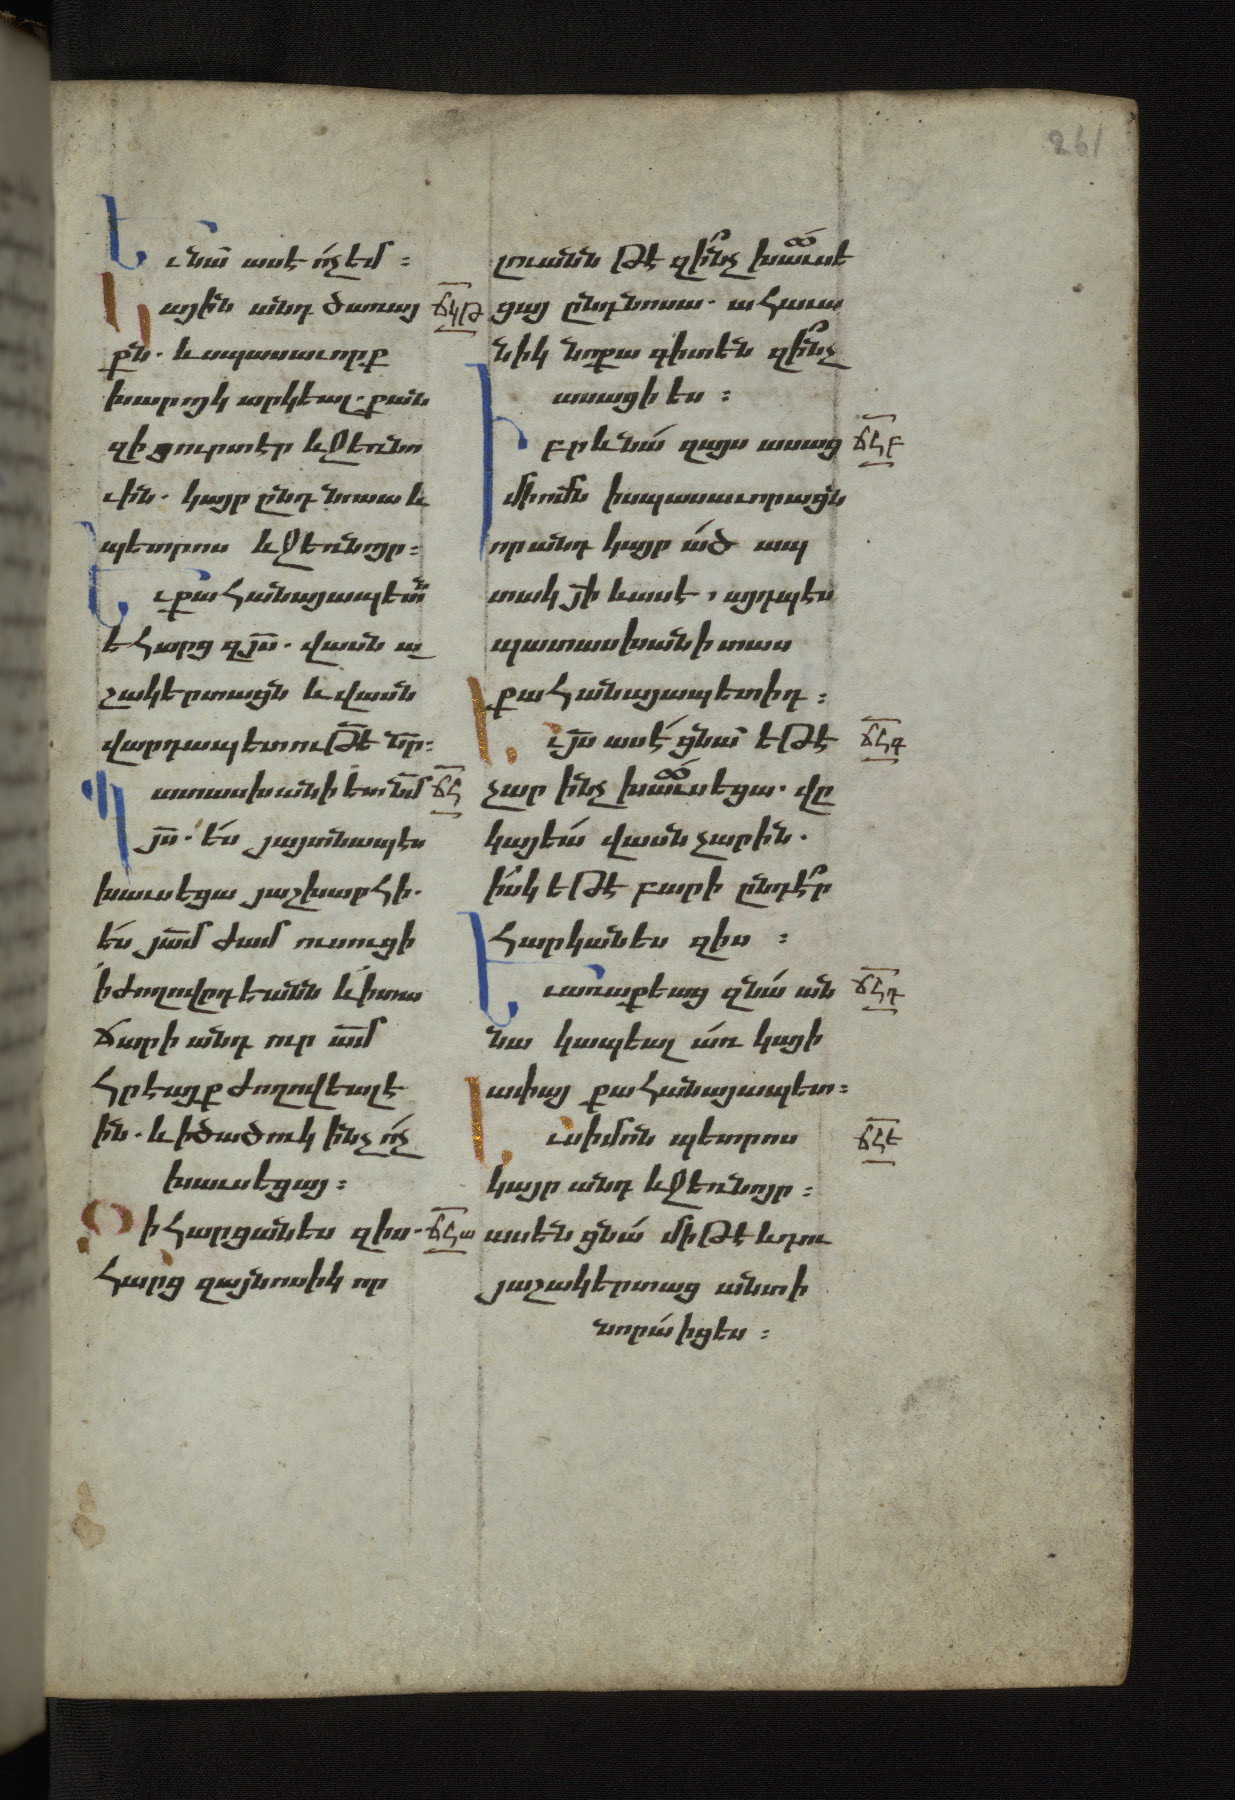 261
Եւ նա՛ ասէ ո՛չ եմ։
Կային անդ ծառայ
ճկթ
քն. և սպասաւորք
խարոյկ արկեալ. քան
զի ցուրտ էր և ջեռնո
ւին. կայր ընդ նոսա և
պետրոս և ջեռնոյր։
Եւ քահանայապետն
եհարց զյս. վասն ա
շակերտացն և վասն
վարդապետութե նր։
Պատասխանի ետ նմ
ճհ
յս. ե՛ս յայտնապէս
խաւսեցա յաշխարհի.
ե՛ս յամ ժամ ուսուցի
ի ժողովըրդեանն և ի տա
ճարի անդ ուր ամ
հրէայք ժողովեալ է
ին. և ի ծածուկ ինչ ո՛չ
խաւսեցայ։
Զի հարցանես զիս.
ճհա
հարց զայնոսիկ որ
լուանն թէ զի՞նչ խաւսե
ցայ ընդ նոսա. ահաւա
նիկ նոքա գիտեն զի՞նչ
ասացի ես։
Իբրև նա՛ զայս ասաց
ճհբ
մի ոմն ի սպասաւորացն
որ անդ կայր ա՛ծ ապ
տակ յի և ասէ, այդպէս
պատասխանի տաս
քահանայապետիդ։
Եւ յս ասէ ցնա՛ եթէ
ճհգ
չար ինչ խաւսեցա. վը
կայեա՛ վասն չարին.
ի՛սկ եթէ բարի ընդէ՞ր
հարկանես զիս։
Եւ առաքեաց զնա՛ ան
ճհդ
նա կապեալ ա՛ռ կայի
ափայ քահանայապետ։
Եւ սիմոն պետրոս
ճհե
կայր անդ և ջեռնոյր։
ասեն ցնա՛ մի թէ և դու
յաշակերտաց անտի
նորա՛ իցես։